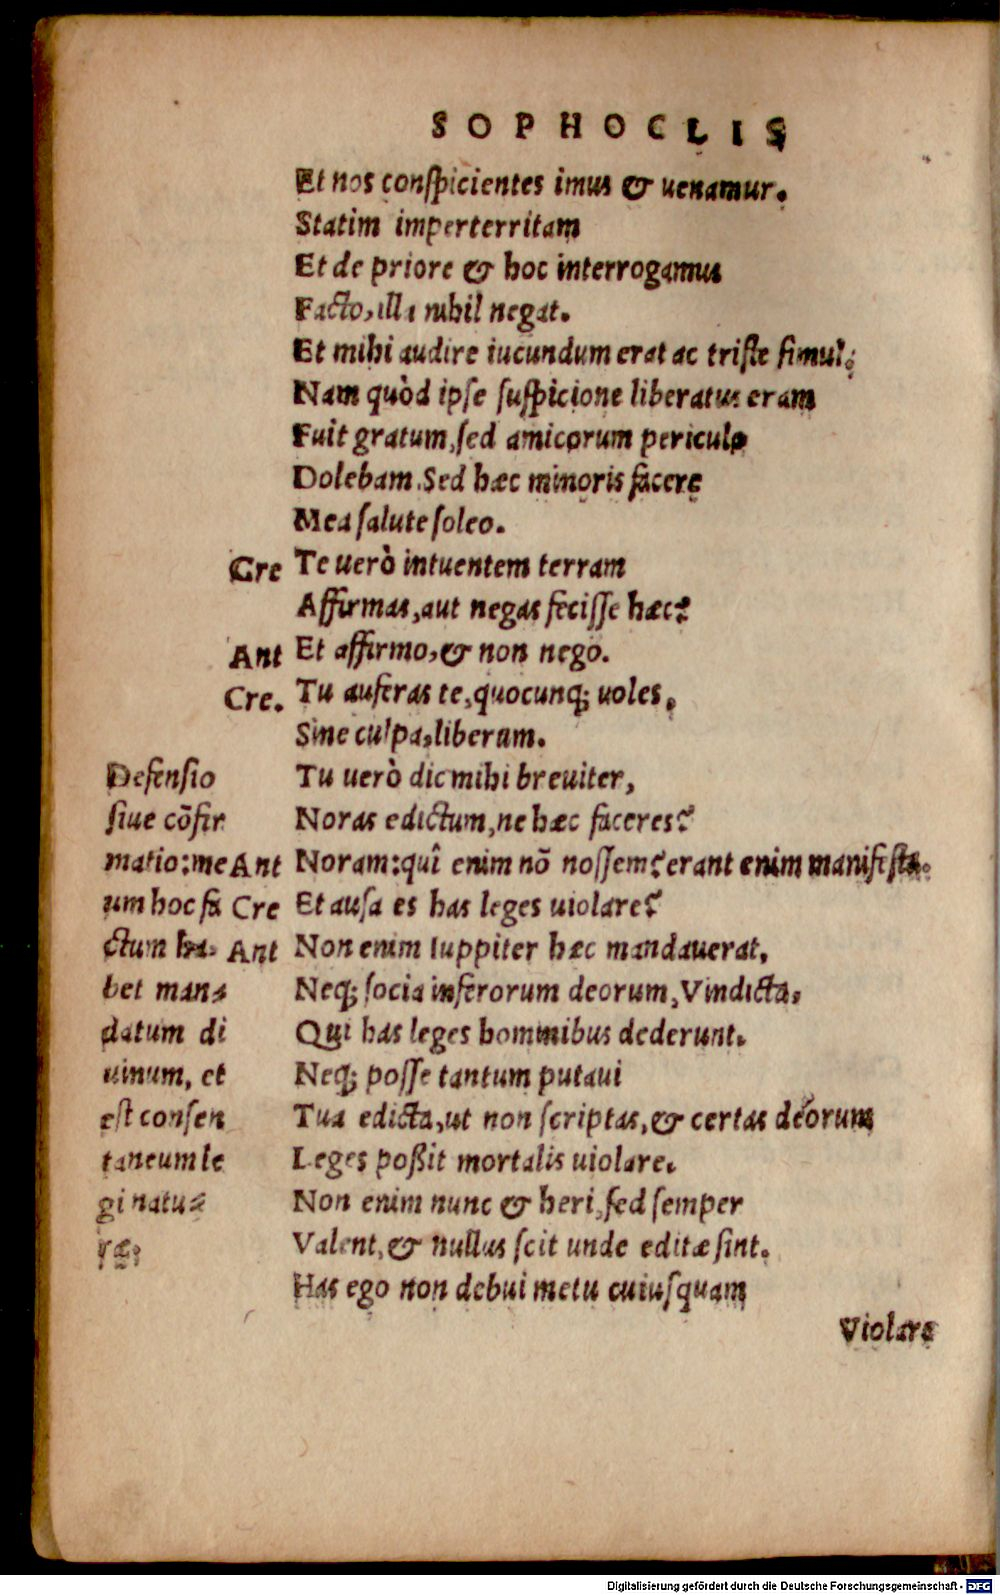 SOPHOCLIS
Et nos conspicientes imus & uenamur.
Statim imperterritam
Et de priore & hoc interrogamus
Facto, illa nihil negat.
Et mihi audire iucundum erat ac triste simul:
Nam quòd ipse suspicione liberatus eram
Fuit gratum, sed amicorum periculo
Dolebam. Sed hæc minoris facere
Mea salute soleo.
Cre Te uerò intuentem terram
Affirmas, aut negas fecisse hæc?
Ant Et affirmo, & non nego.
Cre. Tu auferas te, quocunq; uoles,
Sine culpa, liberum.
Defensio Tu uerò dic mihi breuiter,
siue cõfir Noras edictum, ne hæc faceres?
matio: me Ant Noram: quî enim nõ nossem? erant enim manifesta.
um hoc fa Cre Et ausa es has leges uiolare?
ctum ha- Ant Non enim Iuppiter hæc mandauerat,
bet man- Neq; socia inferorum deorum, Vindicta,
datum di Qui has leges hominibus dederunt.
uinum, et Neq; posse tantum putaui
est consen Tua edicta, ut non scriptas, & certas deorum
taneum le Leges poßit mortalis uiolare.
gi natu- Non enim nunc & heri, sed semper
ræ; Valent, & nullus scit unde editæ sint.
Has ego non debui metu cuiusquam
Violare
Digitalisierung gefördert durch die Deutsche Forschungsgemeinschaft - DFG